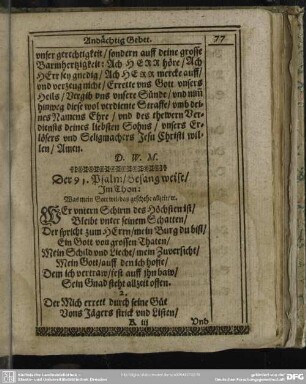 Andächtig Gebet. 77
vnser gerechtigkeit / sondern auff deine grosse
Barmhertzigkeit: Ach HErr höre / Ach
HErr sey gnedig / Ach HERR mercke auff /
vnd verzeug nicht / Errette vns Gott vnsers
Heils / Vergib vns vnsere Sünde / vnd nim
hinweg diese wol verdiente Straffe / vmb dei-
nes Namens Ehre / vnd des thewren Ver-
diensts deines liebsten Sohns / vnsers Er-
lösers vnd Seligmachers Jesu Christi wil-
len / Amen.
D. W. M.
Der 91. Psalm / Gesang weise /
Im Thon:
Was mein Gott wil das gescheh allzeit / etc.
WEr vnterm Schirm des Höchsten ist /
Bleibt vnter seinem Schatten /
Der spricht zum HErrn / mein Burg du bist /
Ein Gott von grossen Thaten /
Mein Schild vnd Liecht / mein Zuversicht /
Mein Gott / auff den ich hoffe /
Dem ich vertraw / fest auff ihn baw /
Sein Gnad steht allzeit offen.
2.
Der Mich errett durch seine Güt
Vons Jägers strick vnd Listen /
K iij Vnd